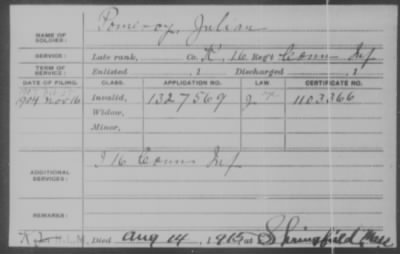 NAME OF SOLDIER: Pomeroy, Julian
SERVICE: Late rank, Co. K, 16 Reg't Conn Inf
TERM OF SERVICE: Enlisted , 1 Discharged , 1
DATE OF FILING. CLASS. APPLICATION NO. LAW. CERTIFICATE NO.
1904 Nov 16 Invalid, 1327569 1103366
Widow,
Minor,
ADDITIONAL SERVICES: I 16 Conn Inf
REMARKS:
Died Aug 14, 1915 at Springfield Mass